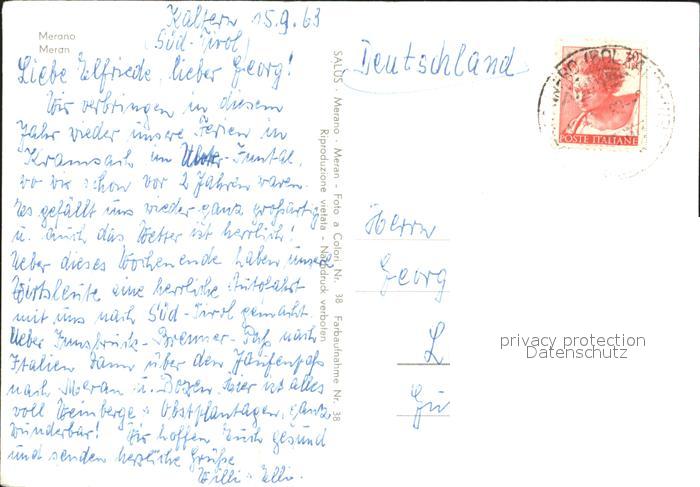 Kaltern 15.9.63
(Süd-Tirol)
Merano
Meran
Liebe Elfriede, lieber Georg!
Wir verbringen in diesem
Jahr wieder unsere Ferien in
Kramsach im Unter-Inntal,
wo wir schon vor 2 Jahren waren.
Es gefällt uns wieder ganz großartig
u. auch das Wetter ist herrlich!
Ueber dieses Wochenende haben unsere
Wirtsleute eine herrliche Autofahrt
mit uns nach Süd-Tirol gemacht.
Ueber Innsbruck-Brenner-Paß nach
Italien dann über den Jaufenpaß
nach Meran u. Bozen. Hier ist alles
voll Weinberge u. Obstplantagen, ganz
wunderbar! Wir hoffen Euch gesund
und senden herzliche Grüße
Willi u. Elli.
SALUS - Merano - Meran - Foto a Colori Nr. 38 Farbaufnahme Nr. 38
Riproduzione vietata - Nachdruck verboten
Deutschland
POSTE ITALIANE
Herrn
Georg
L
Gü
privacy protection
Datenschutz